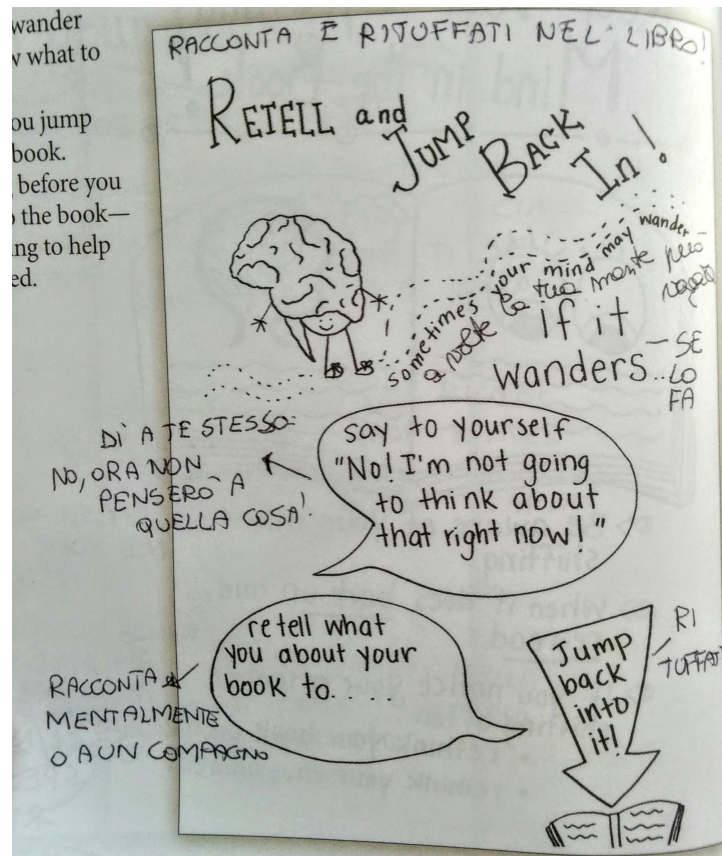 wander
what to
ou jump
book.
before you
the book—
ng to help
ed.
RACCONTA E RITUFFATI NEL LIBRO!
RETELL and
JUMP
BACK
In!
sometimes your mind may wander
a volte la tua mente può
if it
wanders...
— SE
LO
FA
DÌ A TE STESSO:
NO, ORA NON
PENSERÒ A
QUELLA COSA!
say to yourself
"No! I'm not going
to think about
that right now!"
retell what
you about your
book to.....
RACCONTA
MENTALMENTE
O A UN COMPAGNO
Jump
back
into
it!
RI
TUFFATI